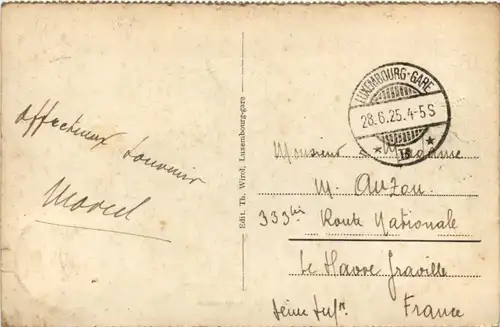 affectueux souvenir
Marcel
Edit. Th. Wirol, Luxembourg-gare
LUXEMBOURG-GARE
28.6.25.4-5S
Monsieur Madame
M. Auzou
333bis Route Nationale
Le Havre Graville
Seine Infre
France